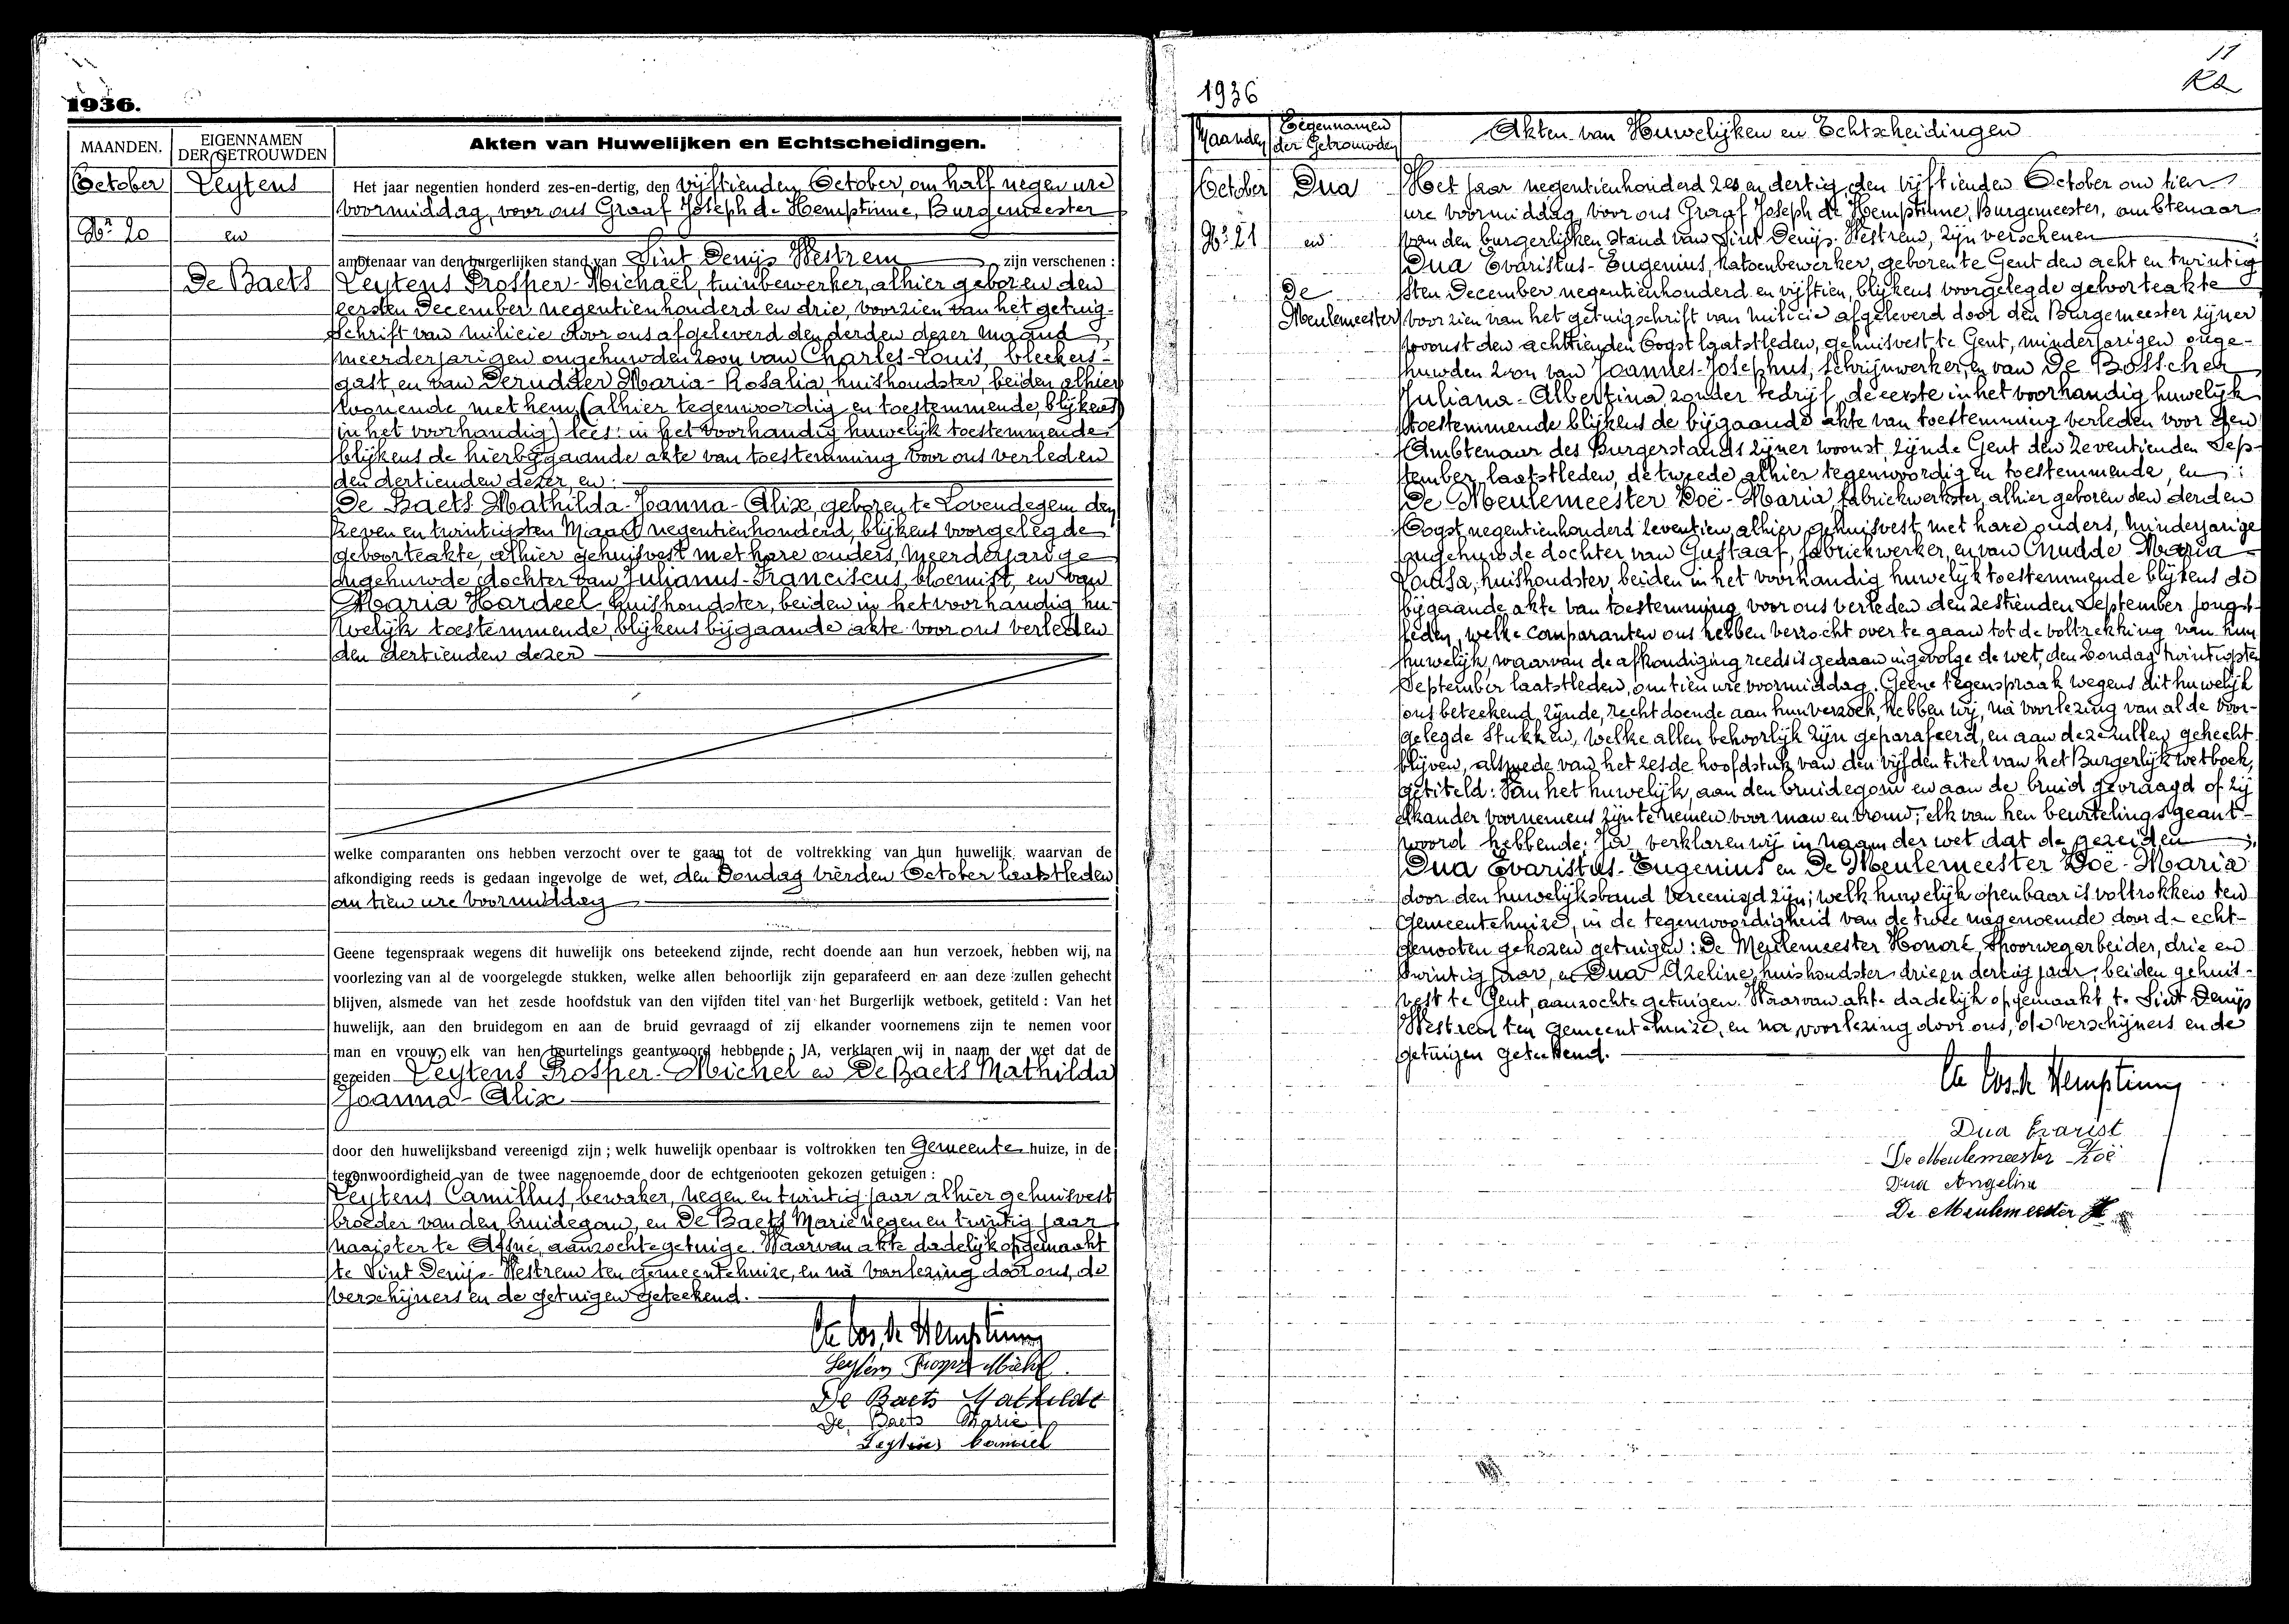 1936.
MAANDEN.
EIGENNAMEN
DER GETROUWDEN
Akten van Huwelijken en Echtscheidingen.
October
Leytens
Nr 20
en
De Baets
Het jaar negentien honderd zes-en-dertig, den vijftienden October, om half negen ure
voormiddag, voor ons Graaf Joseph de Hemptinne, Burgemeester
ambtenaar van den burgerlijken stand van Sint Denijs Westrem zijn verschenen :
Leytens Prosper-Michaël, tuinbewerker, alhier geboren den
eersten December negentienhonderd en drie, voorzien van het getuig-
schrift van milicie door ons afgeleverd den derden dezer maand,
meerderjarigen ongehuwden zoon van Charles-Louis, bleekers-
gast, en van Derudder Maria-Rosalia, huishoudster, beiden alhier
wonende met hem (alhier tegenwoordig en toestemmende, blijkens
in het voorhandig) lees: in het voorhandig huwelijk toestemmende
blijkens de hierbijgaande akte van toestemming voor ons verleden
den dertienden dezer, en :
De Baets Mathilda-Joanna-Alix, geboren te Lovendegem den
zeven en twintigsten Maart negentienhonderd, blijkens voorgelegde
geboorteakte, alhier gehuisvest met hare ouders, meerderjarige
ongehuwde dochter van Julianus-Franciscus, bloemist, en van
Maria Hardeel, huishoudster, beiden in het voorhandig hu-
welijk toestemmende, blijkens bijgaande akte voor ons verleden
den dertienden dezer
welke comparanten ons hebben verzocht over te gaan tot de voltrekking van hun huwelijk, waarvan de
afkondiging reeds is gedaan ingevolge de wet, den Zondag vierden October laatstleden
om tien ure voormiddag
Geene tegenspraak wegens dit huwelijk ons beteekend zijnde, recht doende aan hun verzoek, hebben wij, na
voorlezing van al de voorgelegde stukken, welke allen behoorlijk zijn geparafeerd en aan deze zullen gehecht
blijven, alsmede van het zesde hoofdstuk van den vijfden titel van het Burgerlijk wetboek, getiteld : Van het
huwelijk, aan den bruidegom en aan de bruid gevraagd of zij elkander voornemens zijn te nemen voor
man en vrouw, elk van hen beurtelings geantwoord hebbende : JA, verklaren wij in naam der wet dat de
gezeiden Leytens Prosper-Michel en De Baets Mathilda
Joanna-Alix
door den huwelijksband vereenigd zijn ; welk huwelijk openbaar is voltrokken ten Gemeente huize, in de
tegenwoordigheid van de twee nagenoemde door de echtgenooten gekozen getuigen :
Leytens Camillus, bewaker, negen en twintig jaar alhier gehuisvest
broeder van den bruidegom, en De Baets Marie negen en twintig jaar
naaister te Afsné, aanzochte getuige. Waarvan akte dadelijk opgemaakt
te Sint Denijs-Westrem ten gemeentehuize, en na voorlezing door ons, de
verschijners en de getuigen geteekend.
de Hemptinne
Leytens Prosper Michel
De Baets Mathilde
De Baets Marie
Leytens Camiel
11
1936
Maanden
Eigennamen
der Getrouwden
Akten van Huwelijken en Echtscheidingen
October
Dua
Nr 21
en
De
Meulemeester
Het jaar negentienhonderd zes en dertig, den vijftienden October om tien
ure voormiddag, voor ons Graaf Joseph de Hemptinne, Burgemeester, ambtenaar
van den burgerlijken stand van Sint Denijs-Westrem, zijn verschenen :
Dua Evaristus-Eugenius, katoenbewerker, geboren te Gent den acht en twintig
sten December negentienhonderd en vijftien, blijkens voorgelegde geboorteakte
voorzien van het getuigschrift van milicie afgeleverd door den Burgemeester zijner
woonst den achttienden Oogst laatstleden, gehuisvest te Gent, minderjarigen onge-
huwden zoon van Joannes-Josephus, schrijnwerker, en van De Bosscher
Juliana-Albertina, zonder bedrijf, de eerste in het voorhandig huwelijk
toestemmende blijkens de bijgaande akte van toestemming verleden voor den
Ambtenaar des Burgerstands zijner woonst, zijnde Gent den zeventienden Sep-
tember laatstleden, de tweede alhier tegenwoordig en toestemmende, en :
De Meulemeester Zoë-Maria, fabriekwerkster, alhier geboren den derden
Oogst negentienhonderd zeventien, alhier gehuisvest met hare ouders, minderjarige
ongehuwde dochter van Gustaaf, fabriekwerker, en van Cnudde Maria-
Louisa, huishoudster, beiden in het voorhandig huwelijk toestemmende blijkens de
bijgaande akte van toestemming voor ons verleden den zestienden September jongst-
leden, welke comparanten ons hebben verzocht over te gaan tot de voltrekking van hun
huwelijk, waarvan de afkondiging reeds is gedaan ingevolge de wet, den Zondag twintigsten
September laatstleden, om tien ure voormiddag. Geene tegenspraak wegens dit huwelijk
ons beteekend zijnde, recht doende aan hun verzoek, hebben wij, na voorlezing van al de voor-
gelegde stukken, welke allen behoorlijk zijn geparafeerd, en aan deze zullen gehecht
blijven, alsmede van het zesde hoofdstuk van den vijfden titel van het Burgerlijk wetboek,
getiteld: Van het huwelijk, aan den bruidegom en aan de bruid gevraagd of zij
elkander voornemens zijn te nemen voor man en vrouw, elk van hen beurtelings geant-
woord hebbende: Ja, verklaren wij in naam der wet dat de gezeiden
Dua Evaristus-Eugenius en De Meulemeester Zoë-Maria
door den huwelijksband vereenigd zijn; welk huwelijk openbaar is voltrokken ten
Gemeentehuize, in de tegenwoordigheid van de twee nagenoemde door de echt-
genooten gekozen getuigen: De Meulemeester Honoré, spoorwegarbeider, drie en
twintig jaar, en Dua Azeline, huishoudster drie en dertig jaar, beiden gehuis-
vest te Gent, aanzochte getuigen. Waarvan akte dadelijk opgemaakt te Sint Denijs
Westrem ten gemeentehuize, en na voorlezing door ons, de verschijners en de
getuigen geteekend.
de Hemptinne
Dua Evarist
De Meulemeester Zoë
Dua Angelin
De Meulemeester